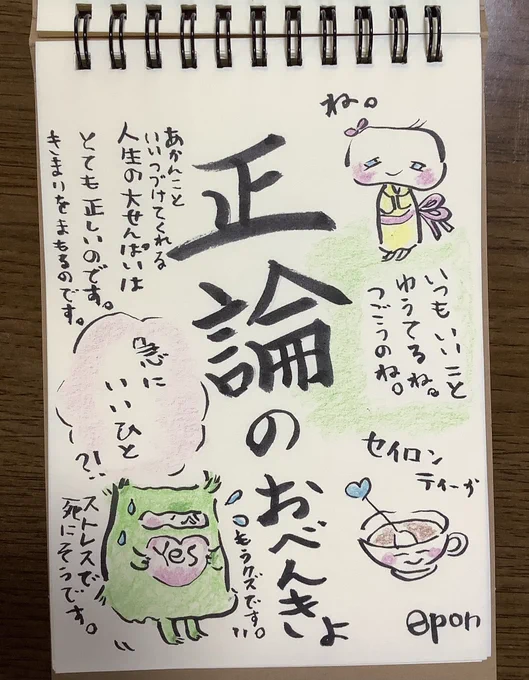 ね。
正論のおべんきょ
いつもいいこと
ゆうてるね。
つごうのね。
あかんこと
いいつづけてくれる
人生の大せんぱいは
とても正しいのです。
きまりをまもるのです。
急に
いいひと
?!
セイロン
ティーが
yes
もうクズです。
ストレスで
死にそうです。
epon